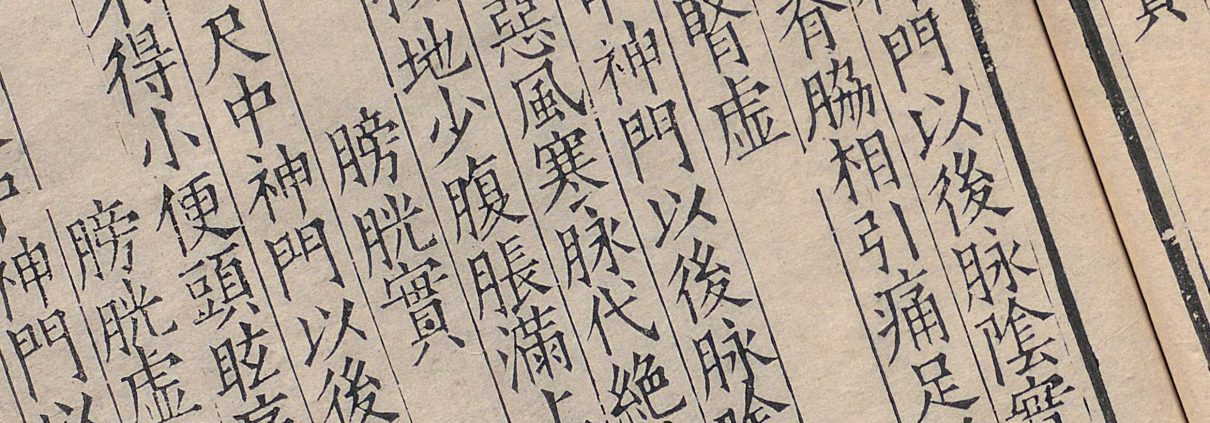 門以後脉陰實
脊脇相引痛足
腎虛
神門以後脉陰
惡風寒脉代絶
地少腹脹滿
膀胱實
尺中神門以後
得小便頭眩
膀胱虛
神門以